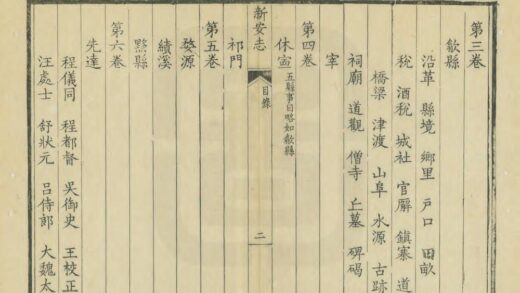 第三卷
歙縣
沿革 縣境 鄉里 戶口 田畝
稅 酒稅 城社 官廨 鎮寨 道
橋梁 津渡 山阜 水源 古跡
祠廟 道觀 僧寺 丘墓 碑碣
宰
第四卷
休寧 五縣事目略如歙縣
新安志 目錄 二
祁門
第五卷
婺源
績溪
黟縣
第六卷
先達
程儀同 程都督 吳御史 王校正
汪處士 舒狀元 呂侍郎 大魏太